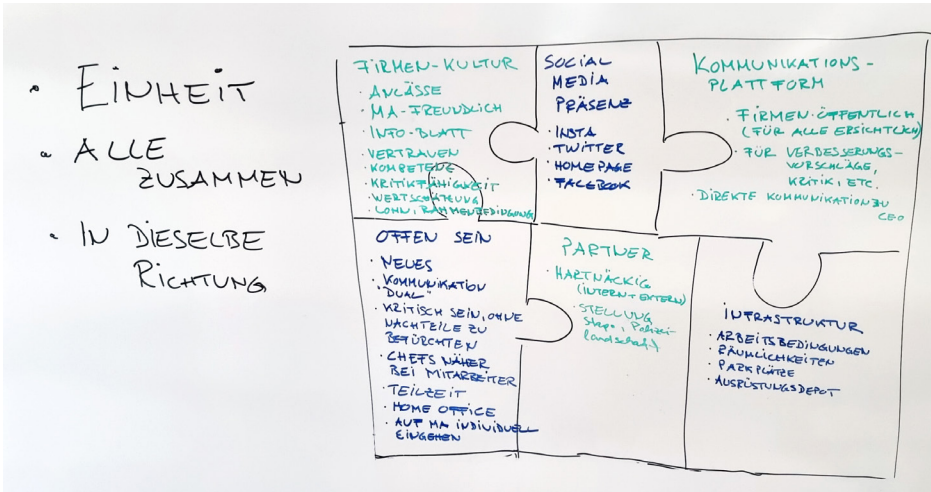 • EINHEIT
• ALLE
ZUSAMMEN
• IN DIESELBE
RICHTUNG
FIRMEN-KULTUR
· ANLÄSSE
· MA-FREUNDLICH
· INFO-BLATT
· VERTRAUEN
· KOMPETENZ
· KRITIKFÄHIGKEIT
· WERTSCHÄTZUNG
· LOHN, RAHMENBEDINGUNG
SOCIAL
MEDIA
PRÄSENZ
· INSTA
· TWITTER
· HOMEPAGE
· FACEBOOK
KOMMUNIKATIONS-
PLATTFORM
· FIRMEN-ÖFFENTLICH
(FÜR ALLE ERSICHTLICH)
· FÜR VERBESSERUNGS-
VORSCHLÄGE,
KRITIK, ETC.
· DIREKTE KOMMUNIKATION ZU
CEO
OFFEN SEIN
· NEUES
· KOMMUNIKATION
"DUAL"
· KRITISCH SEIN, OHNE
NACHTEILE ZU
BEFÜRCHTEN
· CHEFS NÄHER
BEI MITARBEITER
· TEILZEIT
· HOME OFFICE
· AUF MA INDIVIDUELL
EINGEHEN
PARTNER
· HARTNÄCKIG
(INTERN + EXTERN)
· STELLUNG
Stapo, Polizei-
landschaft)
INFRASTRUKTUR
· ARBEITSBEDINGUNGEN
· RÄUMLICHKEITEN
· PARKPLÄTZE
· AUSRÜSTUNGSDEPOT